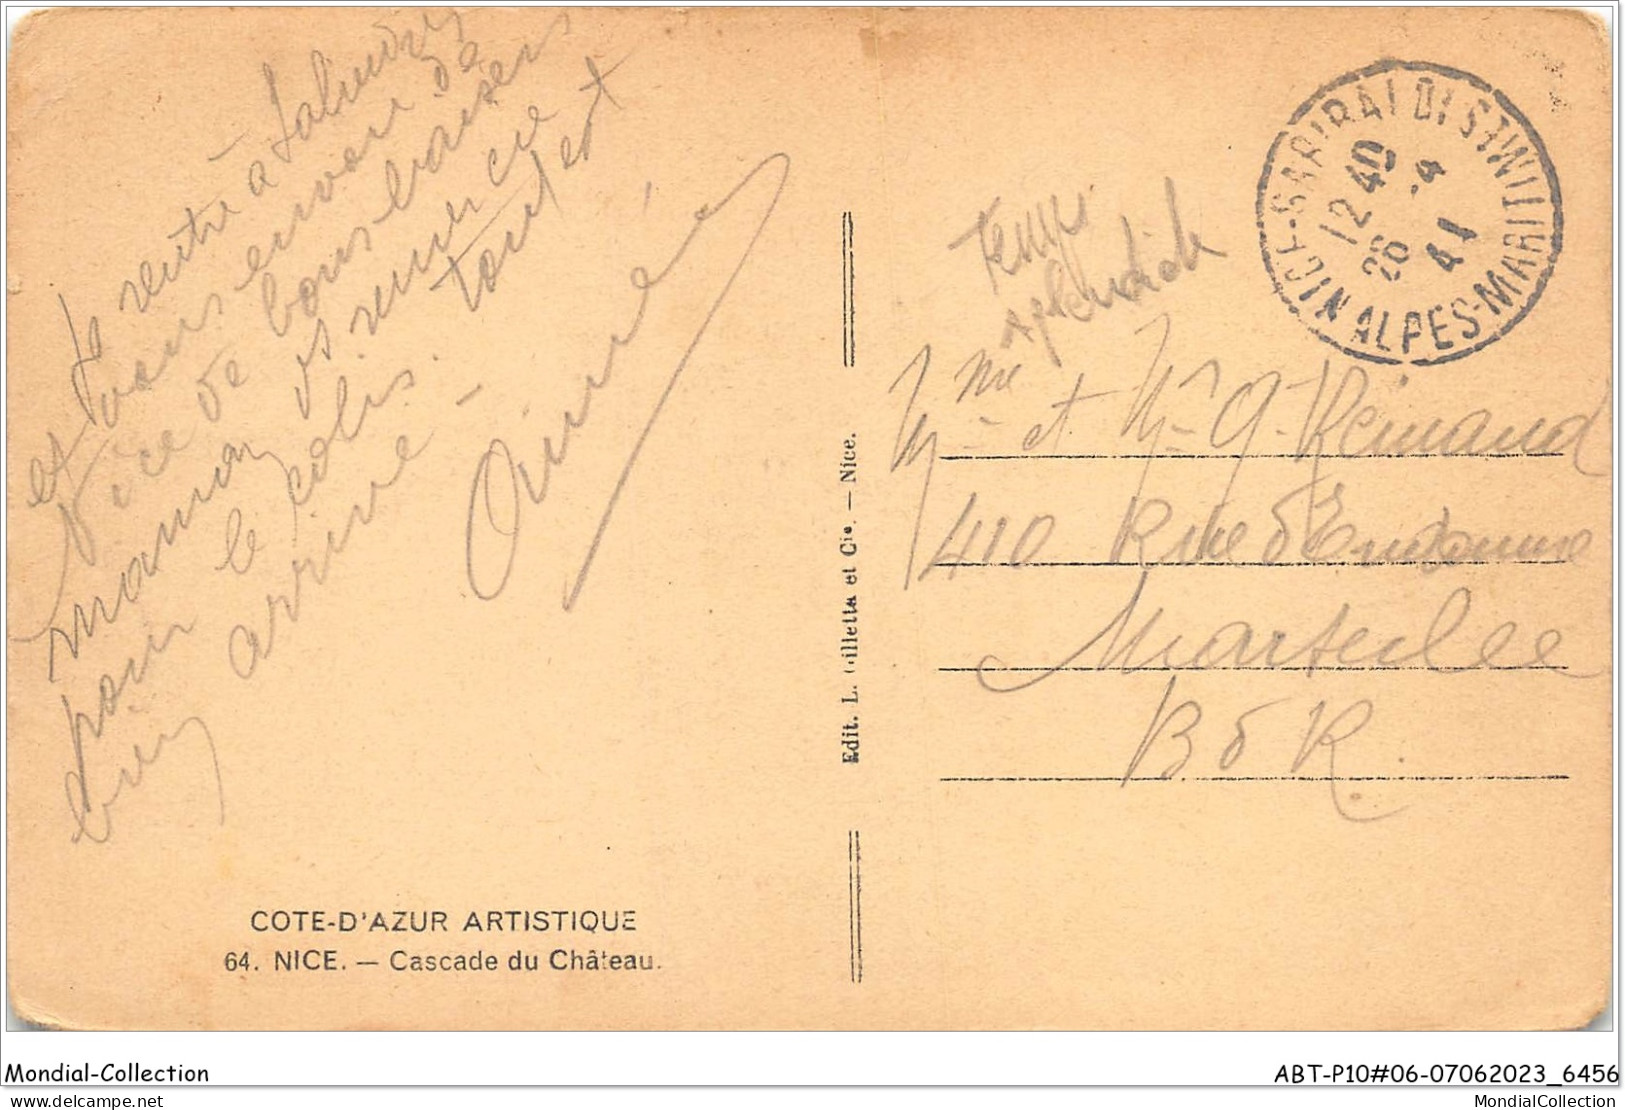 Je rentre à
et vous envoie de
Nice de bons baisers
maman vs remercie
pour le colis. tout est
bien arrivé -
Aimé
NICE-GARIBALDI DISTRIB
12 40
26 -4
41
ALPES-MARITIMES
Temps
splendide
Mme et Mr G. Reinaud
410 Rue d'Endoume
Marseille
B d R.
Edit. L. Gilletta et Cie. — Nice.
COTE-D'AZUR ARTISTIQUE
64. NICE. — Cascade du Château.
Mondial-Collection
ABT-P10#06-07062023_6456
delcampe.net
MondialCollection